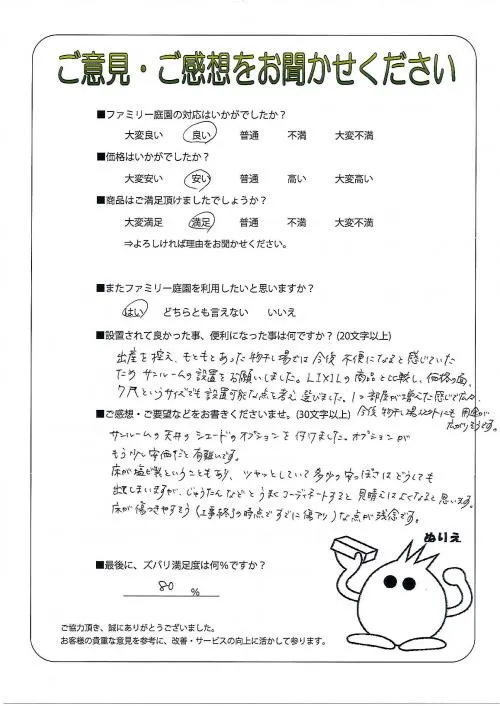 ご意見・ご感想をお聞かせください
■ファミリー庭園の対応はいかがでしたか？
大変良い 良い 普通 不満 大変不満
■価格はいかがでしたか？
大変安い 安い 普通 高い 大変高い
■商品はご満足頂けましたでしょうか？
大変満足 満足 普通 不満 大変不満
⇒よろしければ理由をお聞かせください。
■またファミリー庭園を利用したいと思いますか？
はい どちらとも言えない いいえ
■設置されて良かった事、便利になった事は何ですか？(20文字以上)
出産を控え、もともとあった物干し場では今後不便になると感じていた
ためサンルームの設置をお願いしました。LIXILの商品と比較し、価格の面、
7尺というサイズでも設置可能な点を考え選びました。1つ部屋が増えた感じで広く、
今後物干し場以外にも用途が
広がりそうです。
■ご感想・ご要望などをお書きくださいませ。(30文字以上)
サンルームの天井のシェードのオプションを付けました。オプションが
もう少し安価だと有難いです。
床が塩ビ製ということもあり、ツヤッとしていて多少の安っぽさはどうしても
出てしまいますが、じゅうたんなどとうまくコーディネートすると見晴えはよくなると思います。
床が傷つきやすそう(工事終了の時点ですでに傷アリ)な点が残念です。
ぬりえ
■最後に、ズバリ満足度は何%ですか？
80 %
ご協力頂き、誠にありがとうございました。
お客様の貴重な意見を参考に、改善・サービスの向上に活かして参ります。